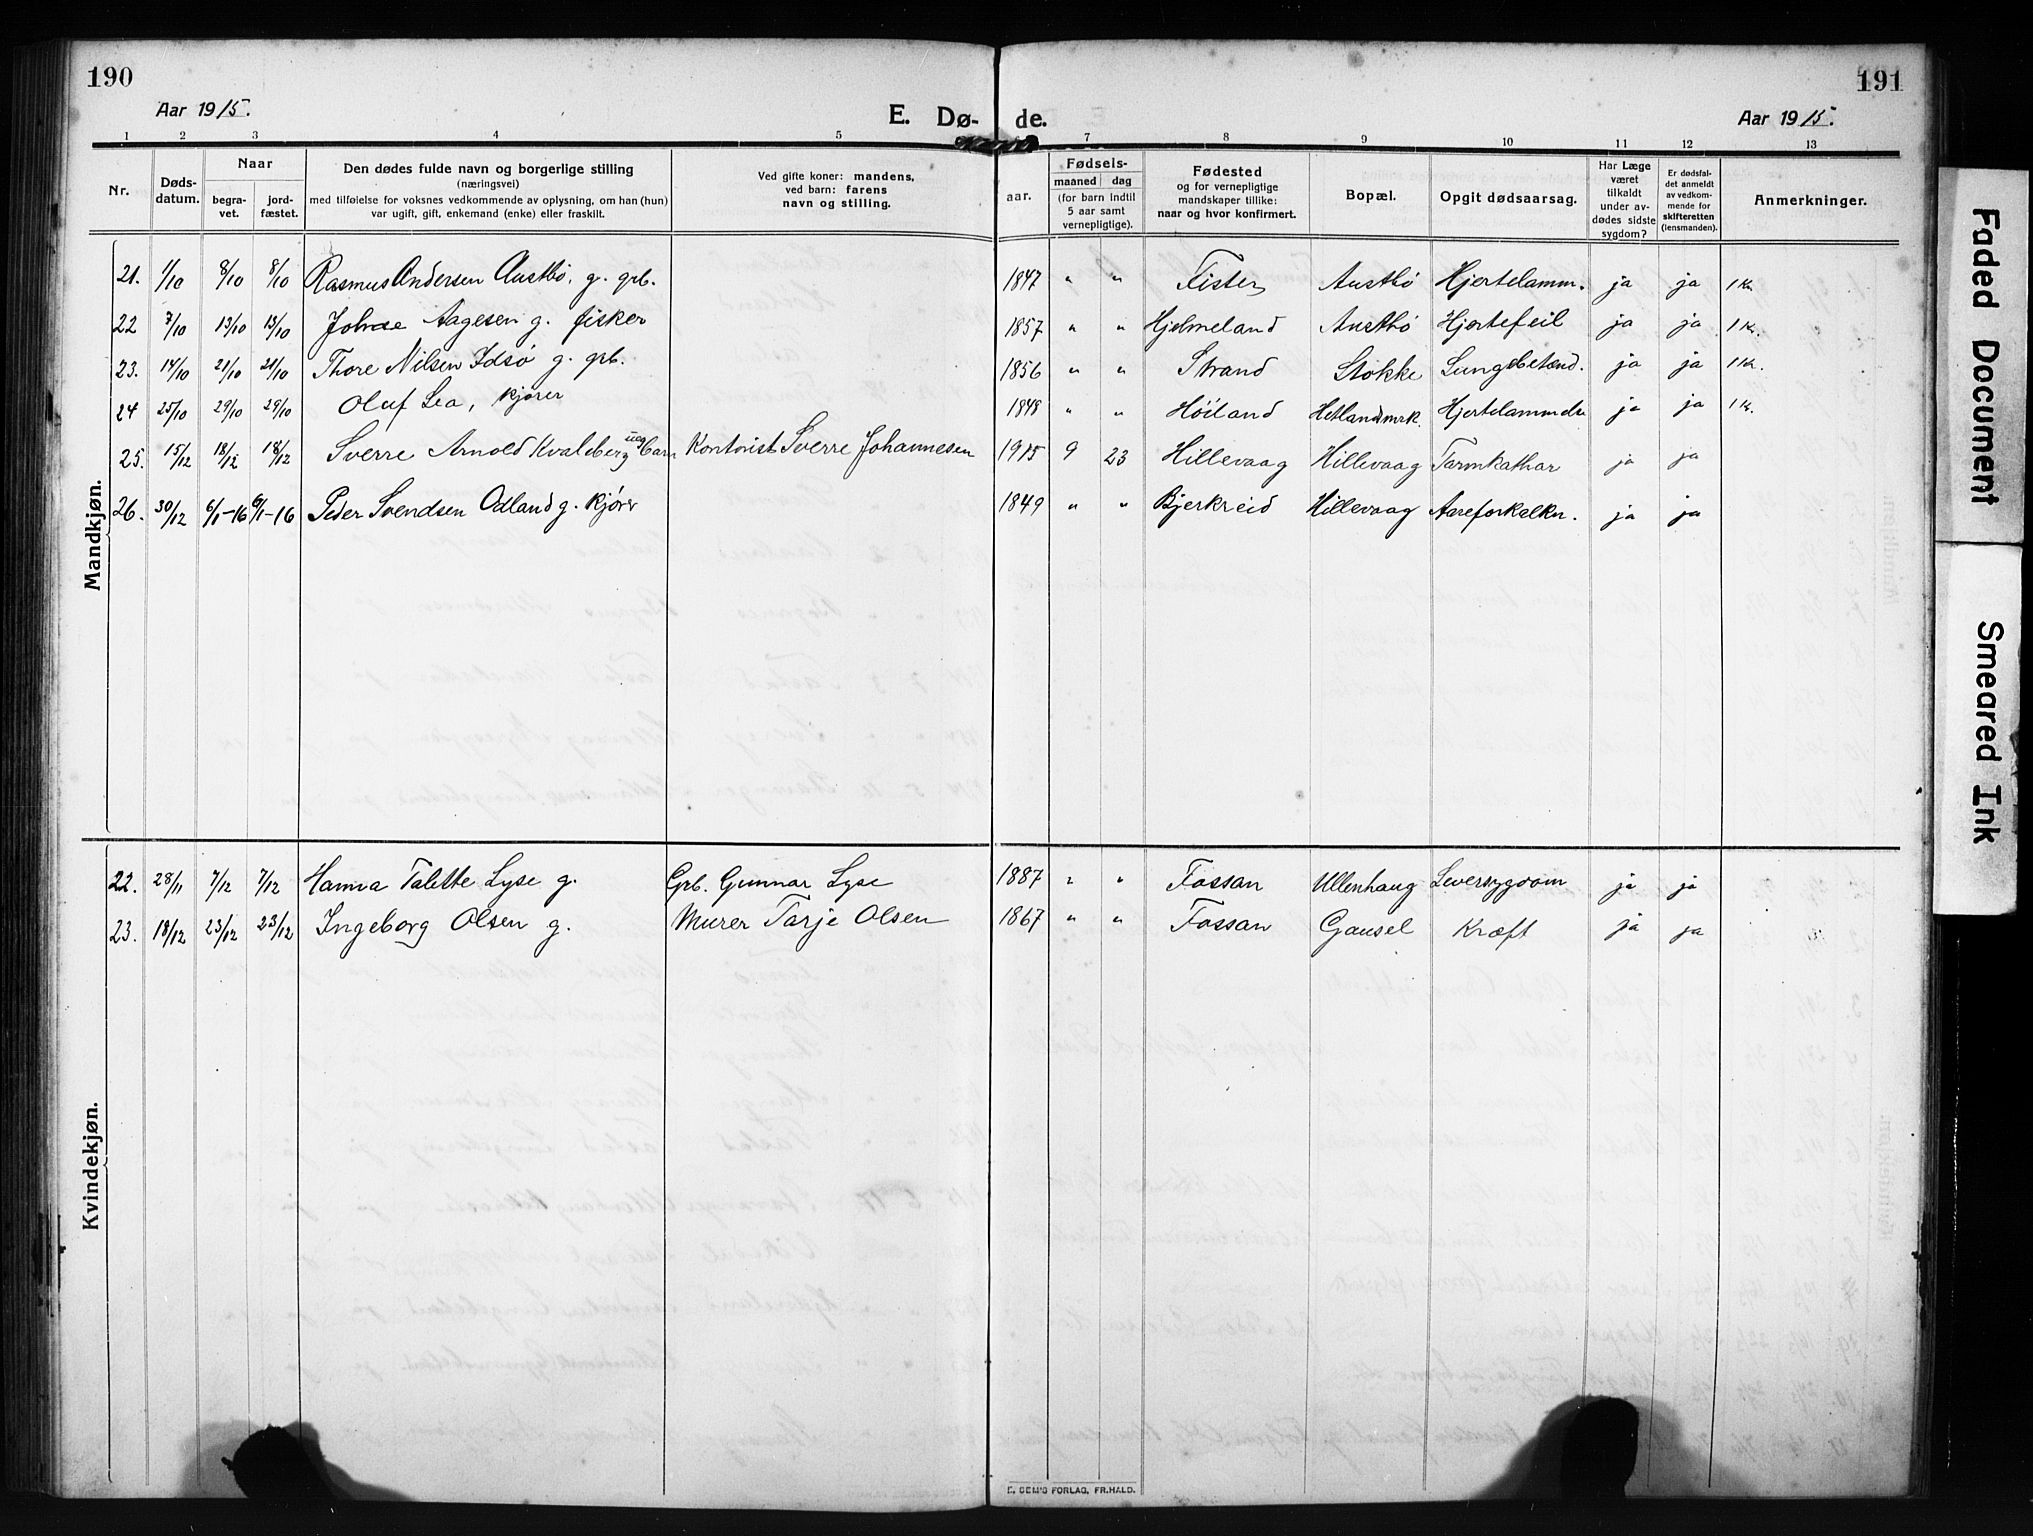 190
191
Aar 1915.
E. Dø- de.
Aar 1915.
1 2 3 4 5 7 8 9 10 11 12 13
Nr.
Døds-datum.
Naar
begra-vet.
jord-fæstet.
Den dødes fulde navn og borgerlige stilling
(næringsvei)
med tilføielse for voksnes vedkommende av oplysning, om han (hun)
var ugift, gift, enkemand (enke) eller fraskilt.
Ved gifte koner: mandens,
ved barn: farens
navn og stilling.
aar.
Fødsels-
maaned dag
(for barn indtil
5 aar samt
vernepligtige).
Fødested
og for vernepligtige
mandskaper tillike:
naar og hvor konfirmert.
Bopæl.
Opgit dødsaarsag.
Har Læge
været
tilkaldt
under av-
dødes sidste
sygdom?
Er dødsfal-
det anmeldt
av vedkom-
mende for
skifteretten
(lensmanden).
Anmerkninger.
Mandkjøn.
21. 1/10 8/10 8/10 Rasmus Andersen Austbö, g. grb. 1847 " " Fister Austbö Hjertelamm. ja ja 1 Kr.
22 7/10 13/10 13/10 Johne Aagesen g. fisker 1857 " " Hjelmeland Austbö Hjertefeil ja ja 1 Kr.
23. 14/10 21/10 21/10 Thore Nilsen Idsö g. grb. 1856 " " Strand Stokke Lungebetænd. ja ja 1 Kr.
24 25/10 29/10 29/10 Oluf Lea, kjører 1848 " " Höiland Hetlandsmrk. Hjertelammelse ja ja 1 Kr.
25. 15/12 18/12 18/12 Sverre Arnold Kvaleberg ueg barn Kontorist Sverre Johannesen 1915 9 23 Hillevaag Hillevaag Tarmkathar ja ja
26. 30/12 6/1-16 6/1-16 Peder Svendsen Odland g. kjörer 1849 " " Bjerkreid Hillevaag Aareforkalkn. ja ja
Kvindekjøn.
22. 28/11 7/12 7/12 Hanna Talette Lyse g. Grb. Gunnar Lyse 1887 " " Fossan Ullenhaug Leversygdom ja ja
23. 18/12 23/12 23/12 Ingeborg Olsen g. Murer Tarje Olsen 1867 " " Fossan Gausel Kræft ja ja
E. SEM'S FORLAG, FR.HALD.
Faded Document
Smeared Ink